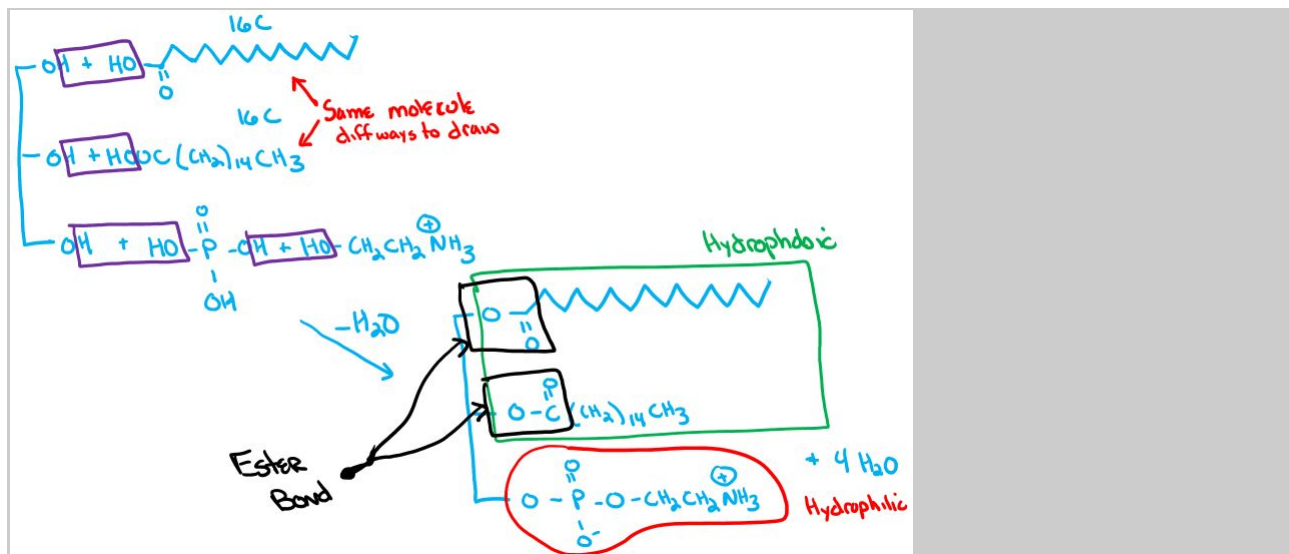 16C
OH + HO
O
16C
Same molecule
diff ways to draw
OH + HOOC(CH2)14CH3
O
OH + HO-P-OH + HO-CH2CH2NH3
+
OH
Hydrophobic
-H2O
O
O
O
O-C(CH2)14CH3
Ester
Bond
+ 4 H2O
O
+
O-P-O-CH2CH2NH3
Hydrophilic
O-